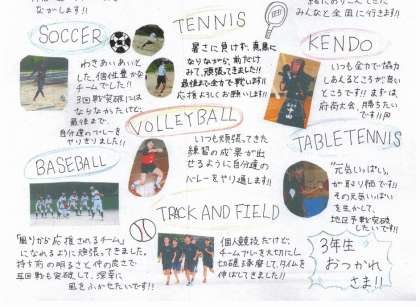 ながします!!
みんなと全国に行きます!!
SOCCER
わきあいあいと
した、個性豊かな
チームでした!!
3回戦突破には
ならなかったけど、
最後まで、
自分達のプレーを
やりきりました!!
TENNIS
暑さに負けず、真黒に
なりながら、前だけ
みて、頑張ってきました!!
最後まで全力で戦います!!
応援よろしくお願いします!!
KENDO
いつも全力で協力
しあえるところが良い
ところです!! まずは、
府南大会、勝ちたい
です!!
VOLLEYBALL
いつも頑張ってきた
練習の成果が出
せるように自分達の
バレーをやり通します!!
TABLETENNIS
"元気いっぱい"
が取り柄です!!
その元気いっぱい
を生かして、
地区予戦突破
したいです!!
BASEBALL
「周りから応援されるチーム」
になれるように頑張ってきました。
持ち前の明るさと仲の良さで、
TRACK AND FIELD
個人競技だけど、
チームプレーを大切にし、
切磋琢磨して、タイムを
伸ばしてきました!!
3年生
おつかれ
さま!!